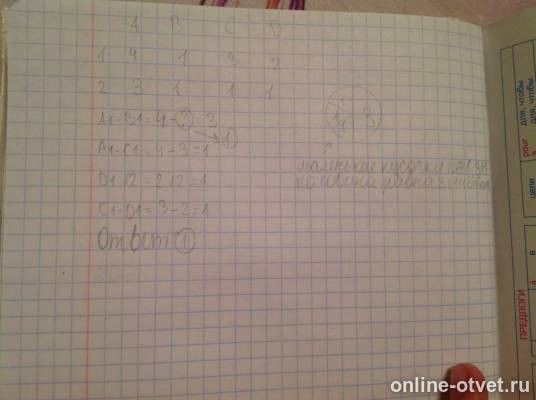 A B C D
1 4 1 3 2
2 3 1 1 1
A1-B1=4-2=2
1
A1-C1=4-3=1
D1:2=2:2=1
C1-D1=3-2=1
Ответ 1
1 1 3
маленькие кусочки
половина равна 3
ПРЕДЛОГИ
в
цели
pour
для, чтобы
для, чтобы
online-otvet.ru